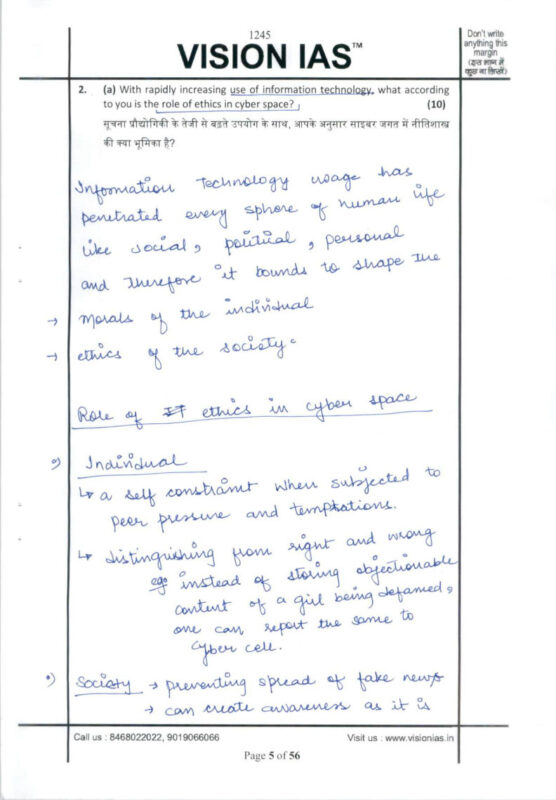 1245
VISION IAS™
Don't write
anything this
margin
(इस भाग में
कुछ ना लिखें)
2. (a) With rapidly increasing use of information technology, what according
to you is the role of ethics in cyber space? (10)
सूचना प्रौद्योगिकी के तेजी से बढ़ते उपयोग के साथ, आपके अनुसार साइबर जगत में नीतिशास्त्र
की क्या भूमिका है?
Information Technology usage has
penetrated every sphere of human life
like social, political, personal
and therefore it bounds to shape the
→ Morals of the individual
→ ethics of the society.
Role of IT ethics in cyber space
Individual
↳ a self constraint when subjected to
peer pressure and temptations.
↳ distinguishing from right and wrong
eg: instead of storing objectionable
content of a girl being defamed,
one can report the same to
cyber cell.
Society → preventing spread of fake news
→ can create awareness as it is
Call us : 8468022022, 9019066066
Visit us : www.visionias.in
Page 5 of 56